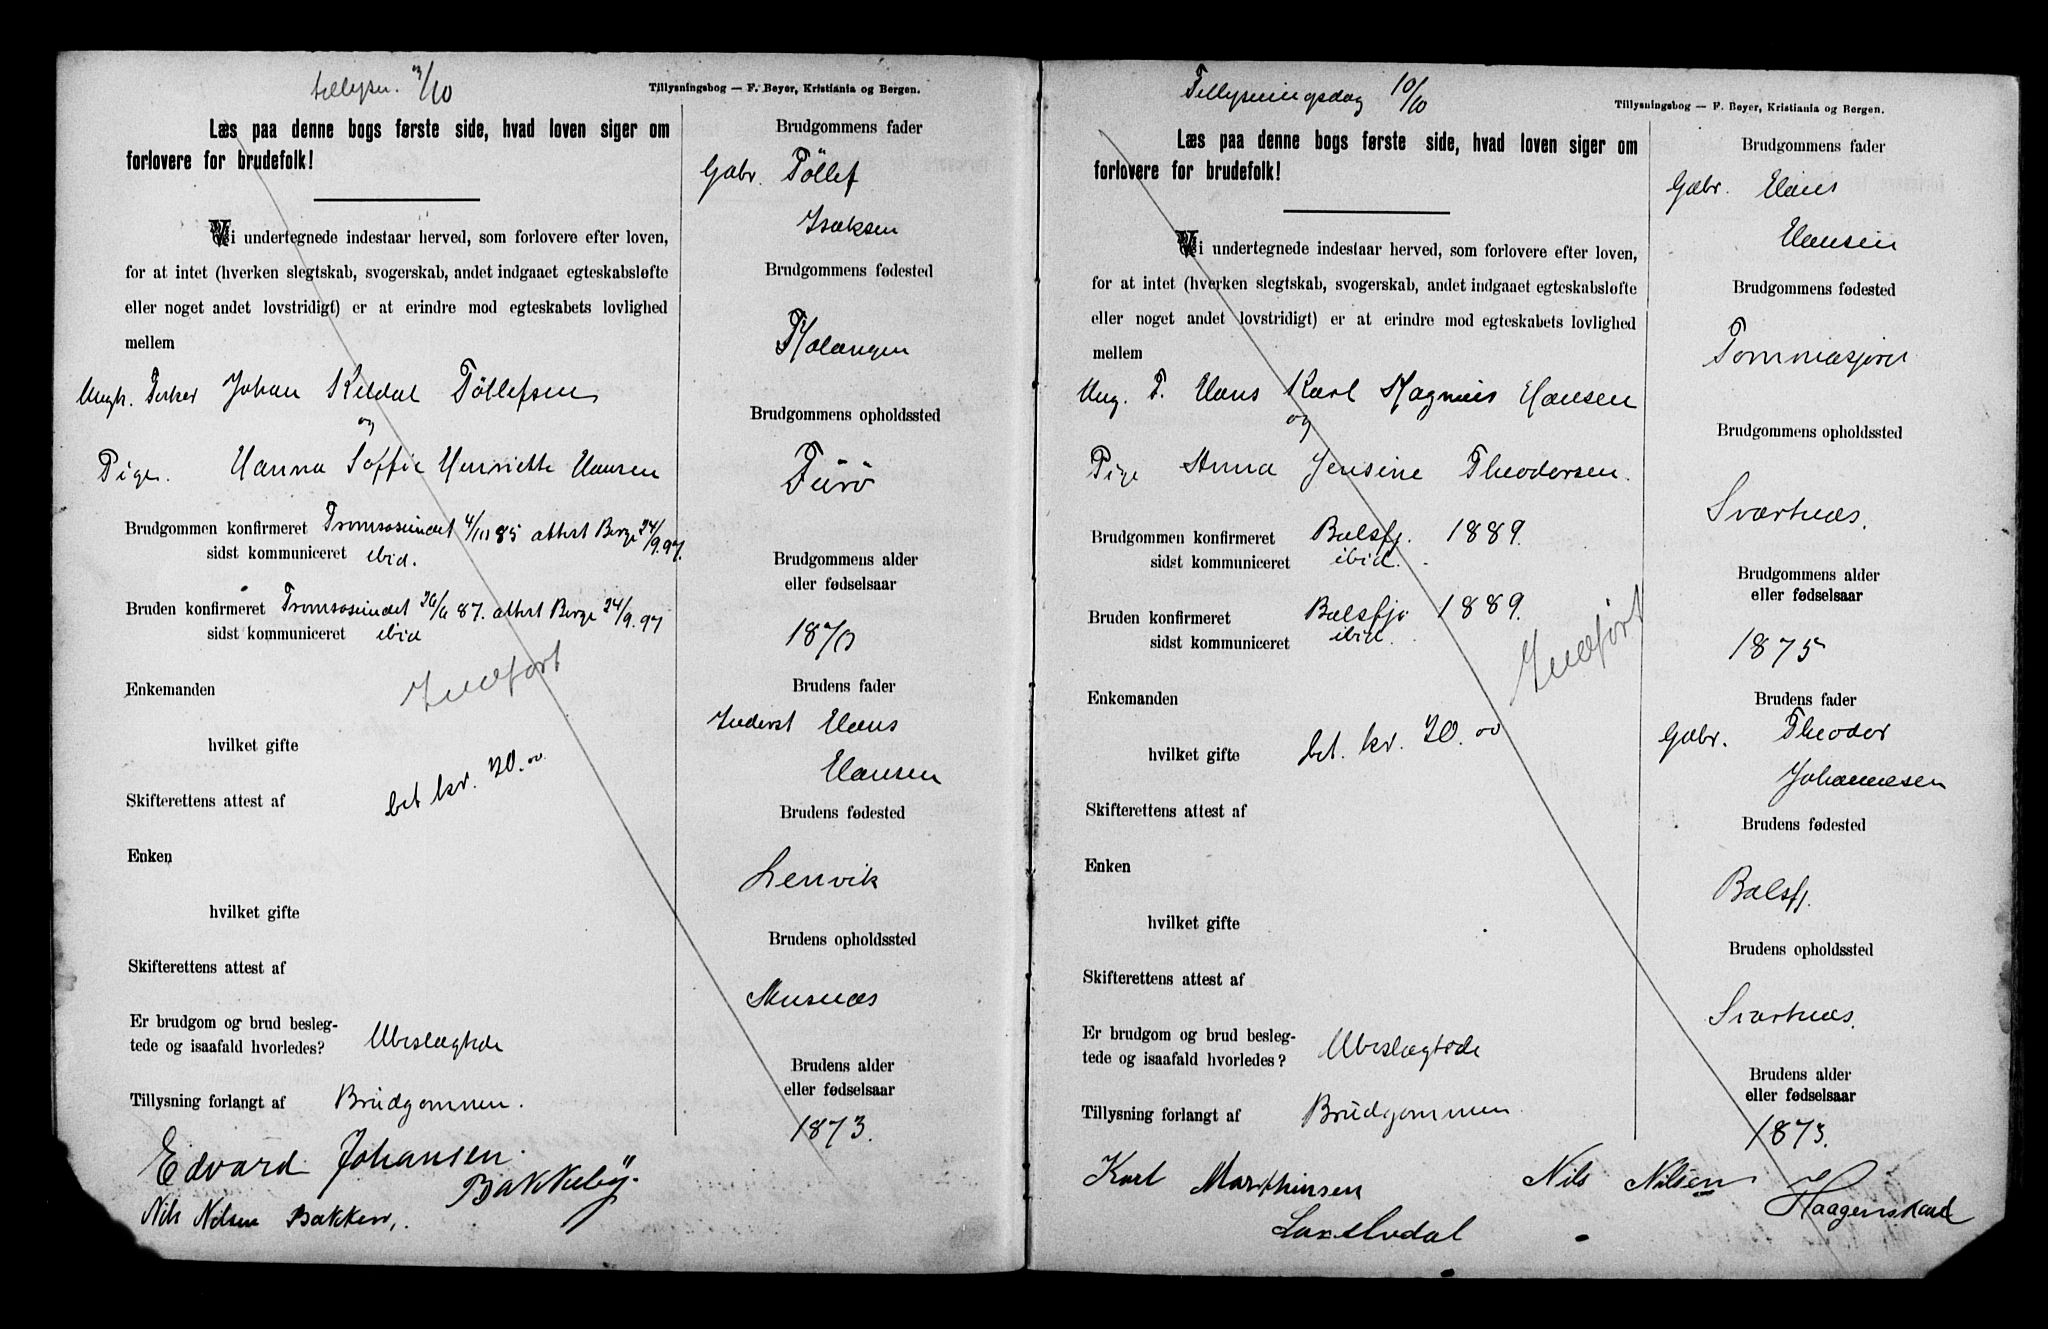 Tillysn. 3/10
Tillysningsbog — F. Beyer, Kristiania og Bergen.
Læs paa denne bogs første side, hvad loven siger om
forlovere for brudefolk!
Vi undertegnede indestaar herved, som forlovere efter loven,
for at intet (hverken slegtskab, svogerskab, andet indgaaet egteskabsløfte
eller noget andet lovstridigt) er at erindre mod egteskabets lovlighed
mellem
Ungk. Fisker Johan Kildal Tøllefsen
og
Pige. Hanna Soffie Henriette Hansen
Brudgommen konfirmeret Tromsøsundet 4/10 85 attest Berge 24/9.97.
sidst kommuniceret ibid.
Bruden konfirmeret Tromsøsundet 26/6 87. attest Berge 24/9.97
sidst kommuniceret ibid
Indført
Enkemanden
hvilket gifte
bet kr. 20.00
Skifterettens attest af
Enken
hvilket gifte
Skifterettens attest af
Er brudgom og brud besleg-
tede og isaafald hvorledes? Ubeslægtede
Tillysning forlangt af Brudgommen.
Edvard Johansen.
Bakkeby.
Nils Nilsen Bakken,
Brudgommens fader
Gabr. Tøllef
Isaksen
Brudgommens fødested
Malangen
Brudgommens opholdssted
Turø
Brudgommens alder
eller fødselsaar
1870
Brudens fader
Inderst Hans
Hansen
Brudens fødested
Lenvik
Brudens opholdssted
Ansnæs
Brudens alder
eller fødselsaar
1873.
Tillysningsdag 10/10
Tillysningsbog — F. Beyer, Kristiania og Bergen.
Læs paa denne bogs første side, hvad loven siger om
forlovere for brudefolk!
Vi undertegnede indestaar herved, som forlovere efter loven,
for at intet (hverken slegtskab, svogerskab, andet indgaaet egteskabsløfte
eller noget andet lovstridigt) er at erindre mod egteskabets lovlighed
mellem
Ung. F. Hans Karl Magnus Hansen
og
Pige Anna Jensine Theodorsen.
Brudgommen konfirmeret Balsfj. 1889.
sidst kommuniceret ibid.
Bruden konfirmeret Balsfjo 1889.
sidst kommuniceret ibid.
Indført
Enkemanden
hvilket gifte bet. kr. 20.00
Skifterettens attest af
Enken
hvilket gifte
Skifterettens attest af
Er brudgom og brud besleg-
tede og isaafald hvorledes? Ubeslægtede
Tillysning forlangt af Brudgommen.
Karl Marthinsen
Nils Nilsen
Haagenskard
Brudgommens fader
Gabr. Hans
Hansen
Brudgommens fødested
Tommasjord
Brudgommens opholdssted
Svartnæs.
Brudgommens alder
eller fødselsaar
1875
Brudens fader
Gabr. Theodor
Johannesen
Brudens fødested
Balsfj.
Brudens opholdssted
Svartnæs.
Brudens alder
eller fødselsaar
1873.